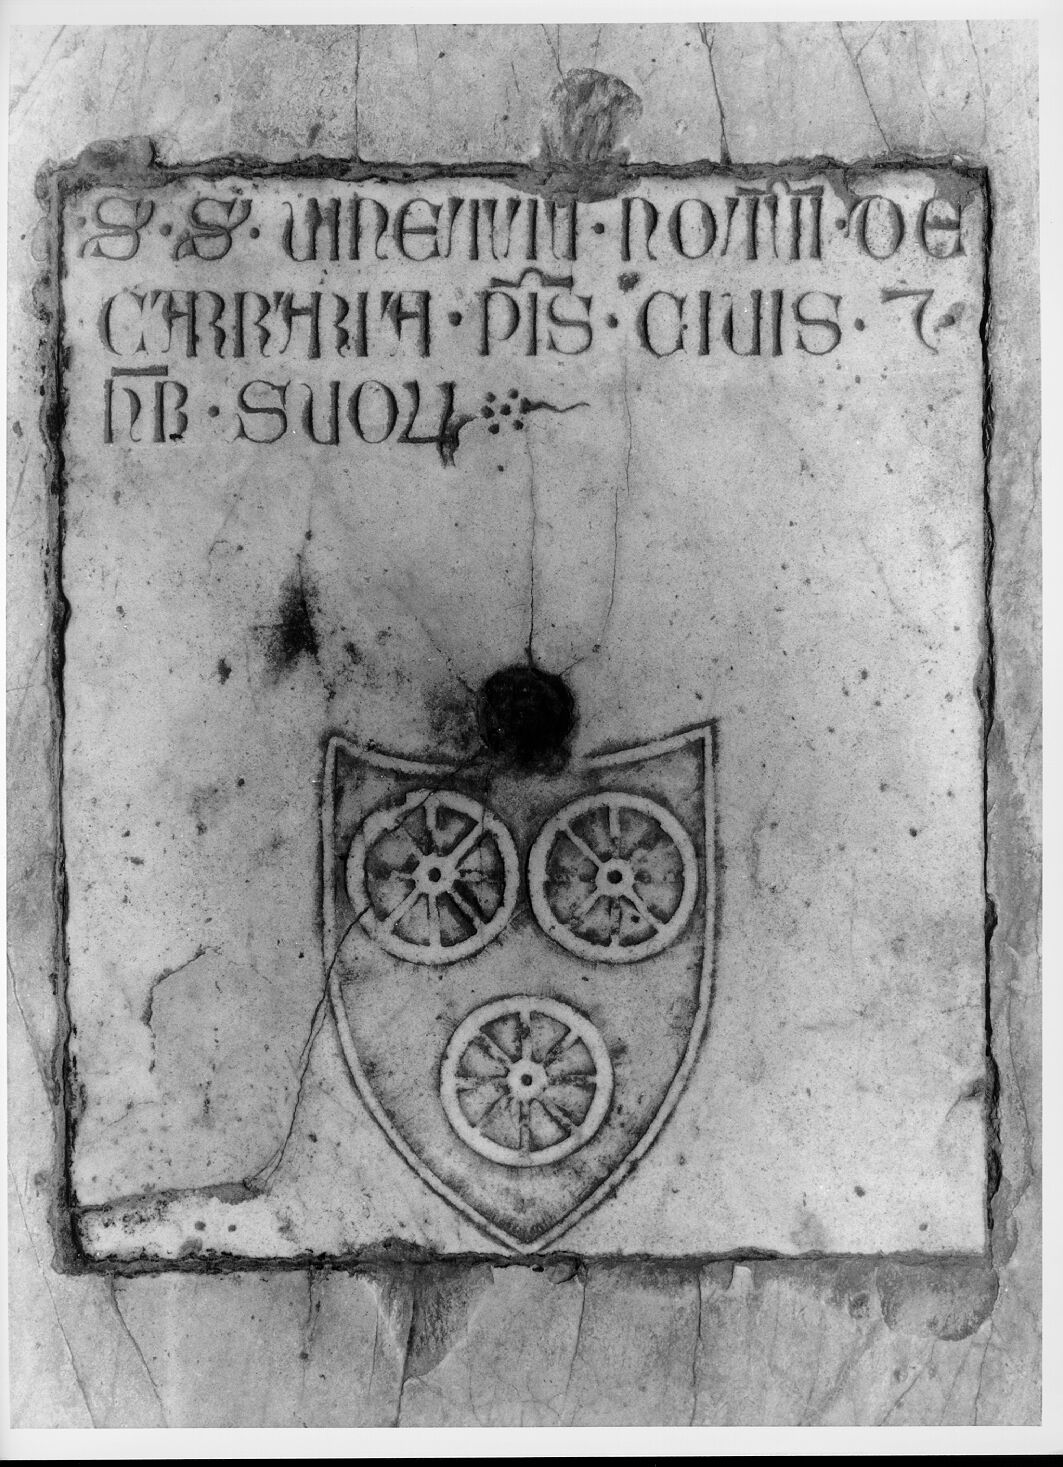 ·S·S· UINETUTI · NOTII · DE
CARRARIA · PIS · CIUIS · 7
HB · SUOꝜ